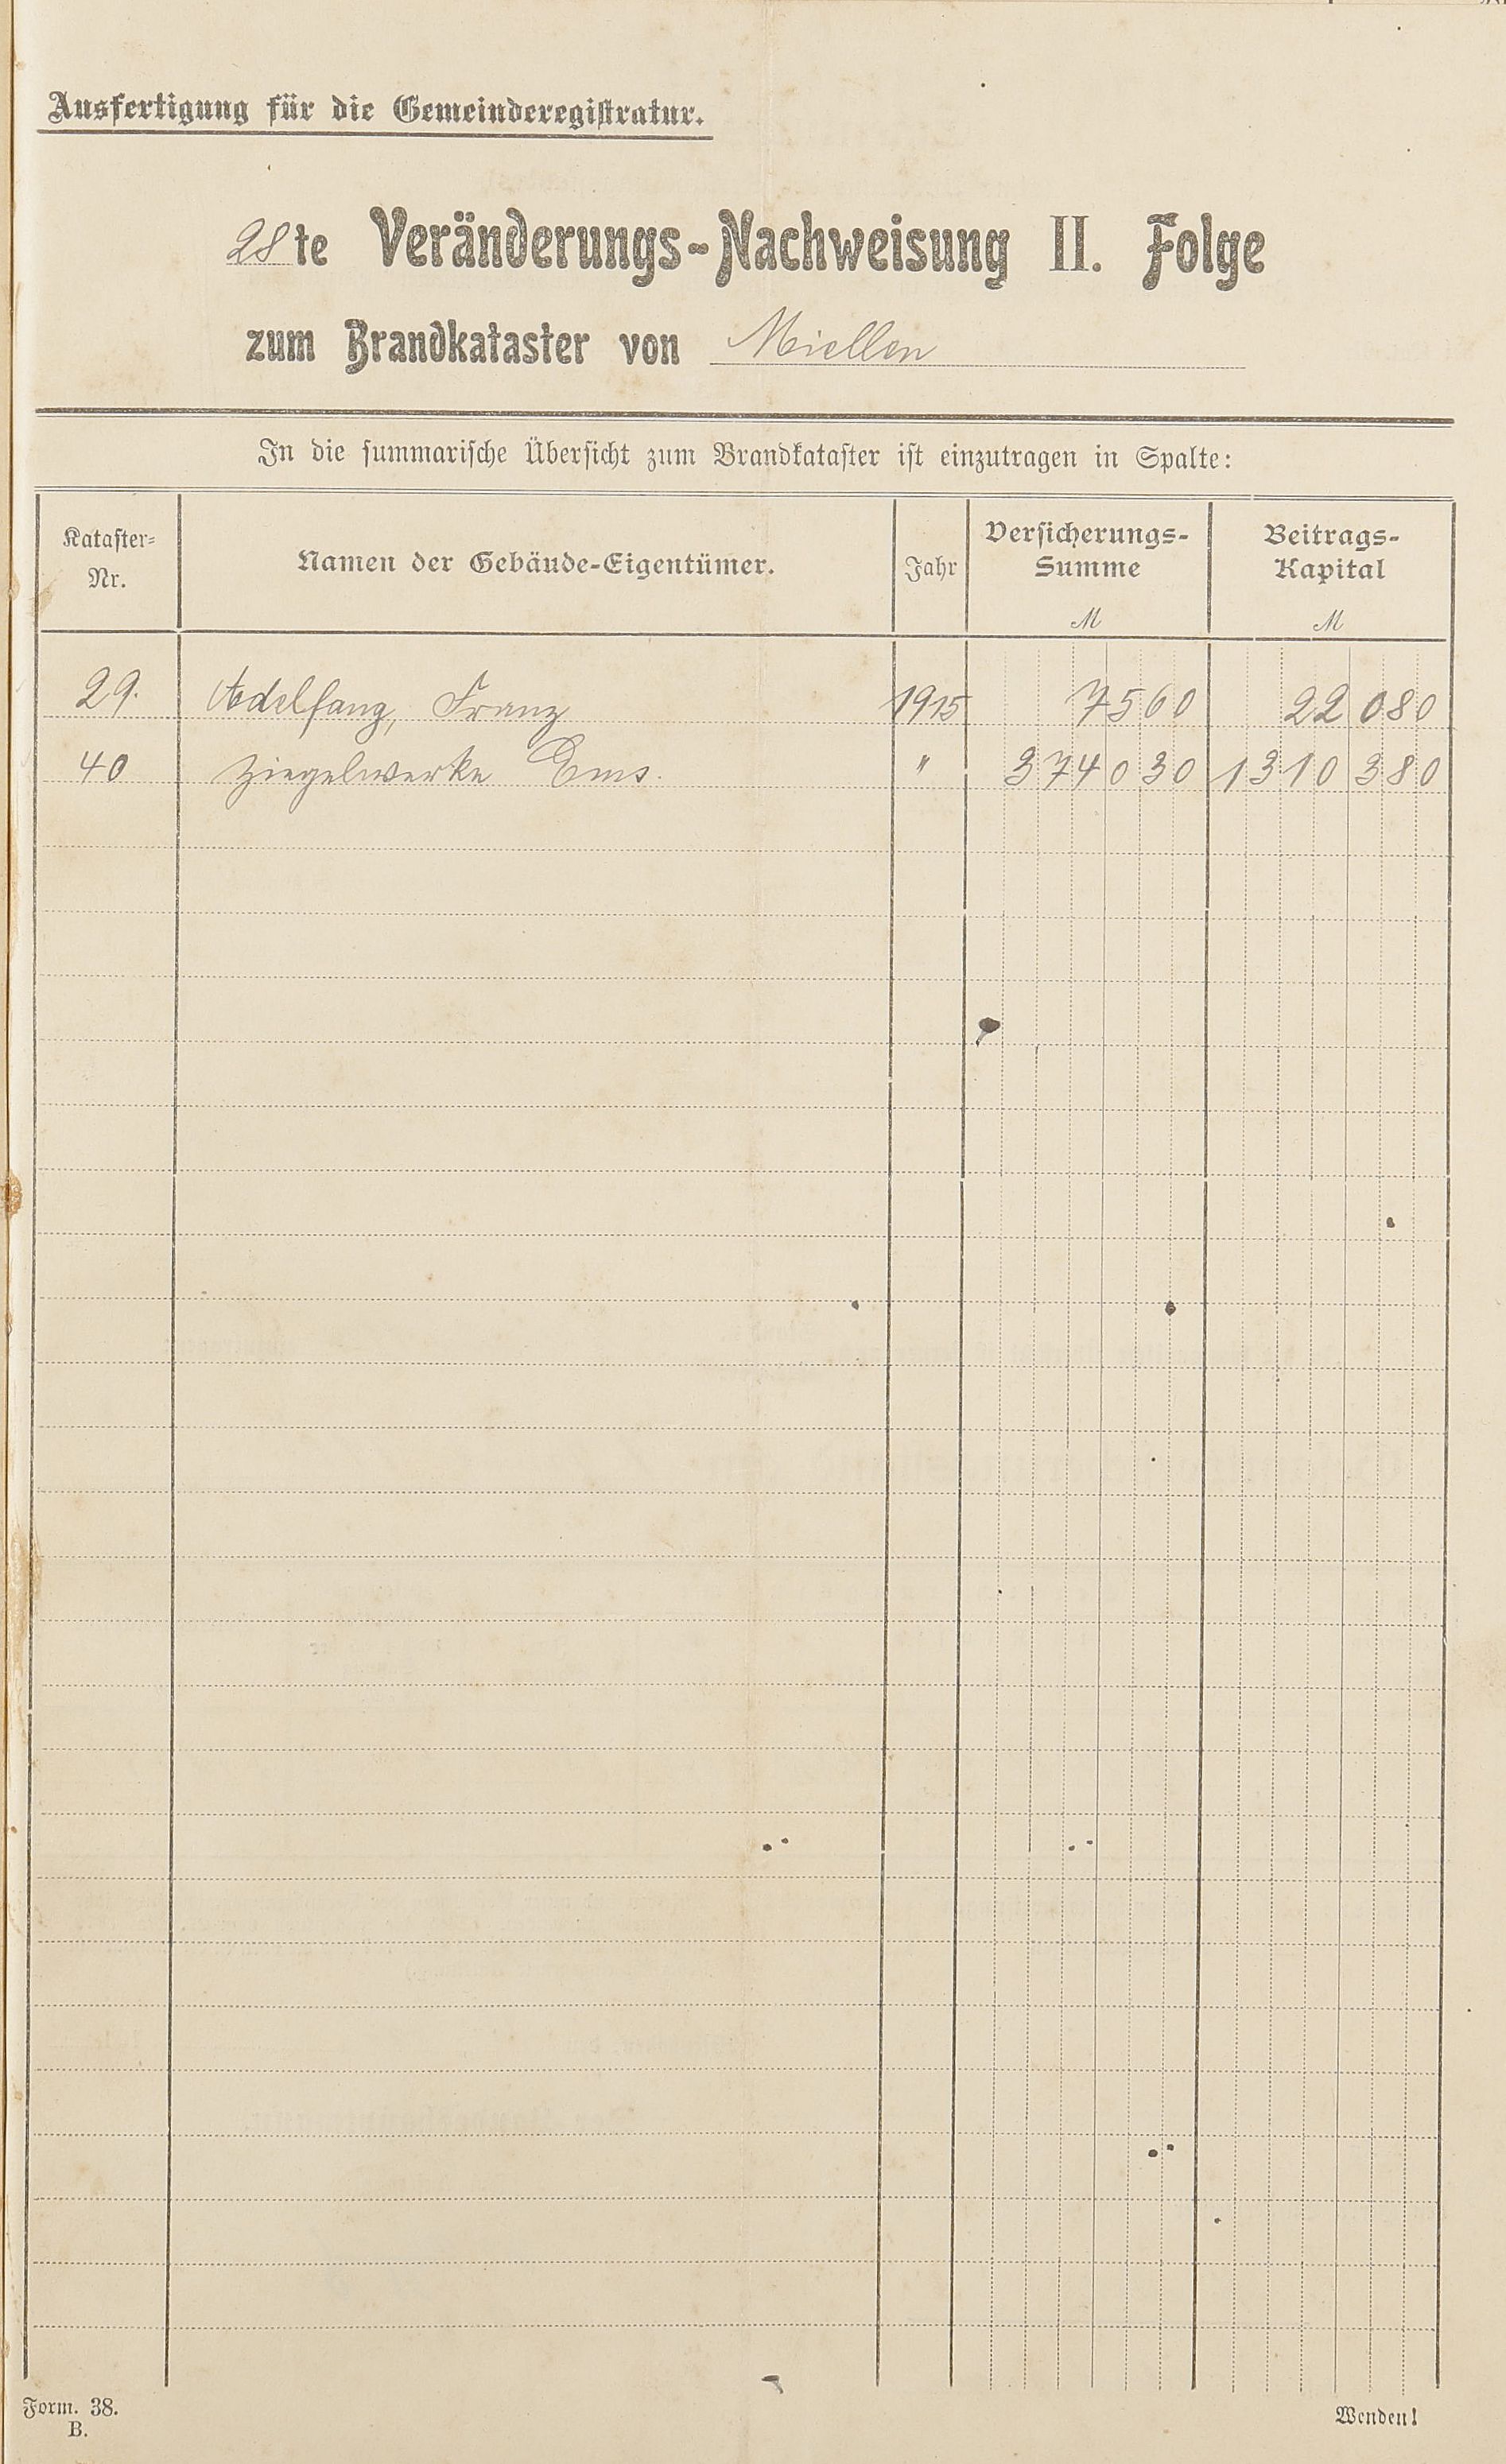 Ausfertigung für die Gemeinderegistratur.
28te Veränderungs-Nachweisung II. Folge
zum Brandkataster von Miellen
In die summarische Übersicht zum Brandkataster ist einzutragen in Spalte:
Kataster-Nr. Namen der Gebäude-Eigentümer. Jahr Versicherungs-Summe M Beitrags-Kapital M
29. Adelfang, Franz 1915 7560 22 080
40 Ziegelwerke Ems. " 374 030 1310 380
Form. 38. Wenden!
B.